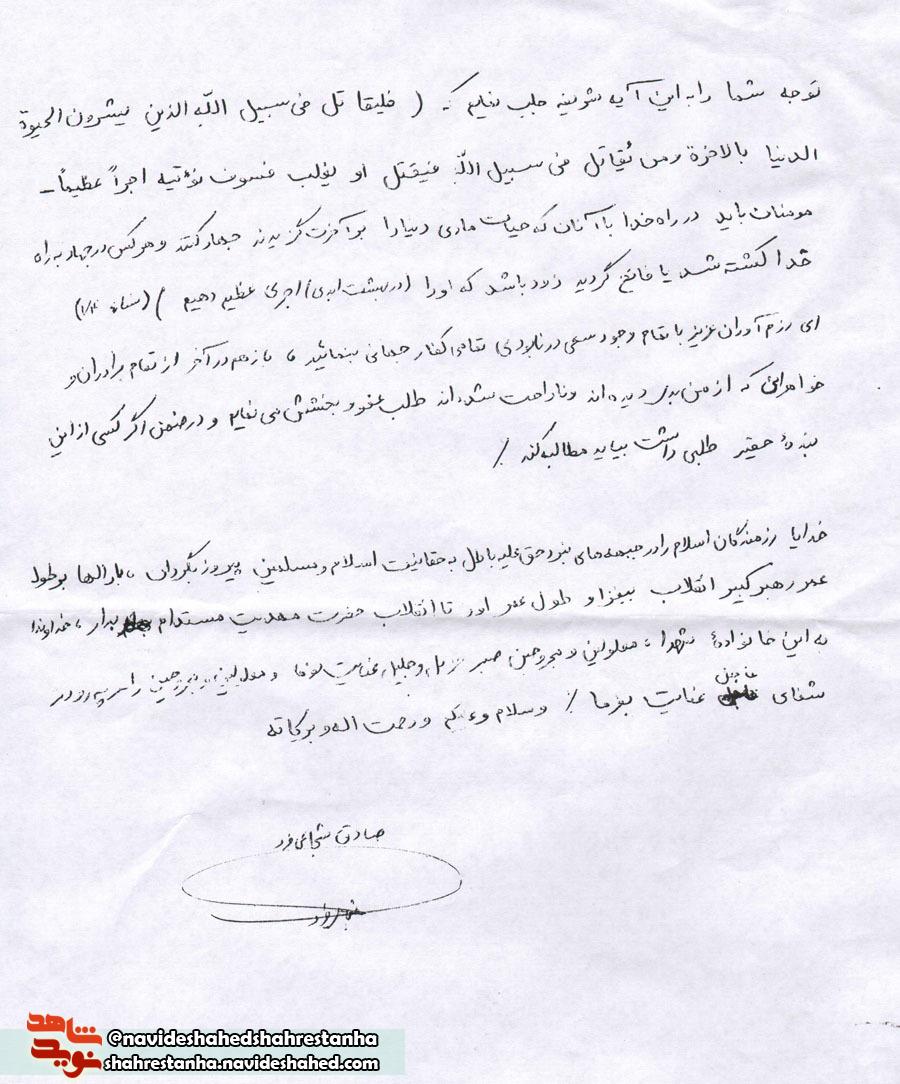 توجه شما را به این آیه شریفه جلب نمایم که ( فلیقاتل فی سبیل اللّه الذین یشرون الحیوة
الدنیا بالاخرة ومن یُقاتل فی سبیل اللّه فیقتل او یغلب فسوف نؤتیه اجراً عظیماً -
مومنان باید در راه خدا با آنان که حیات مادی دنیا را بر آخرت گزیدند جهاد کنند و هر کس در جهاد به راه
خدا کشته شد یا فاتح گردید زود باشد که او را (در بهشت ابدی) اجری عظیم دهیم ) (نساء
ای رزم آوران عزیز با تمام وجود سعی در نابودی تمامی کفار جهانی بنمائید ، بازهم در آخر از تمام برادران و
خواهرانی که از من بدی دیده اند و ناراحت شده اند طلب عفو و بخشش می نمایم و در ضمن اگر کسی از این
بندهٔ حقیر طلبی داشت بیاید مطالبه کند /
خدایا رزمندگان اسلام را در جبهه های نبرد حق علیه باطل به حقانیت اسلام و مسلمین پیروز بگردان ، بارالها بر طول
عمر رهبر کبیر انقلاب بیفزا و طول عمر اور تا انقلاب حضرت مهدیت مستدام بدار ، خداوندا
به این خانوادهٔ شهدا ، معلولین و مجروحین صبر و جلیل عنایت بفرما و معلولین و مجروحین را
شفای عاجل عنایت بفرما / وسلام وعلیکم و رحمت اله و برکاته
صادق شجاعی فرد
شاهد
نوید
@navideshahedshahrestanha
shahrestanha.navideshahed.com